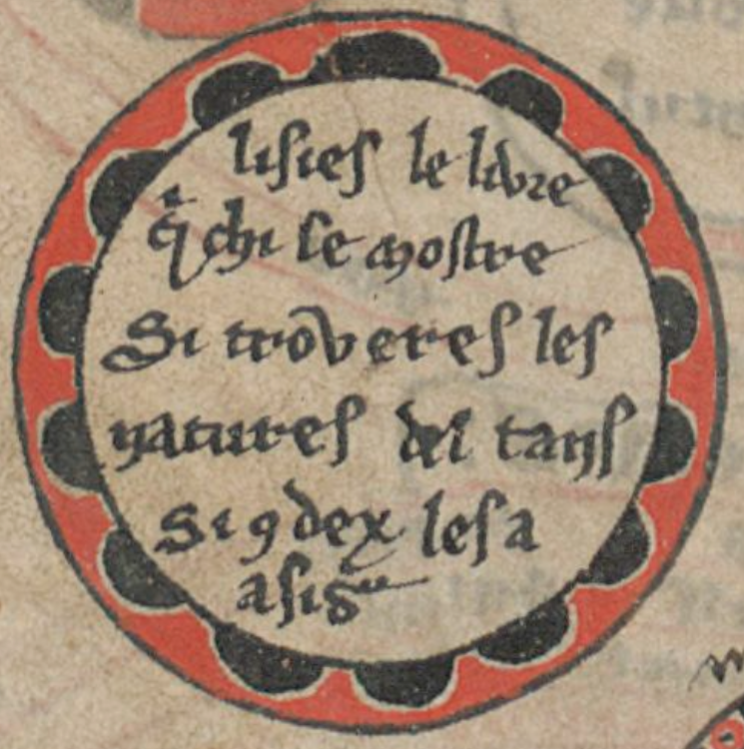 lisies le livre
q̄ chi se mostre
Si trōveres les
natures del tans
Si ꝯ dex les a
asig